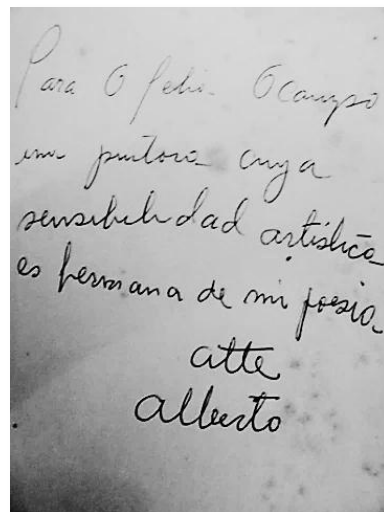 Para Ofelia Ocampo
una pintora cuya
sensibilidad artística
es hermana de mi poesía
atte
Alberto